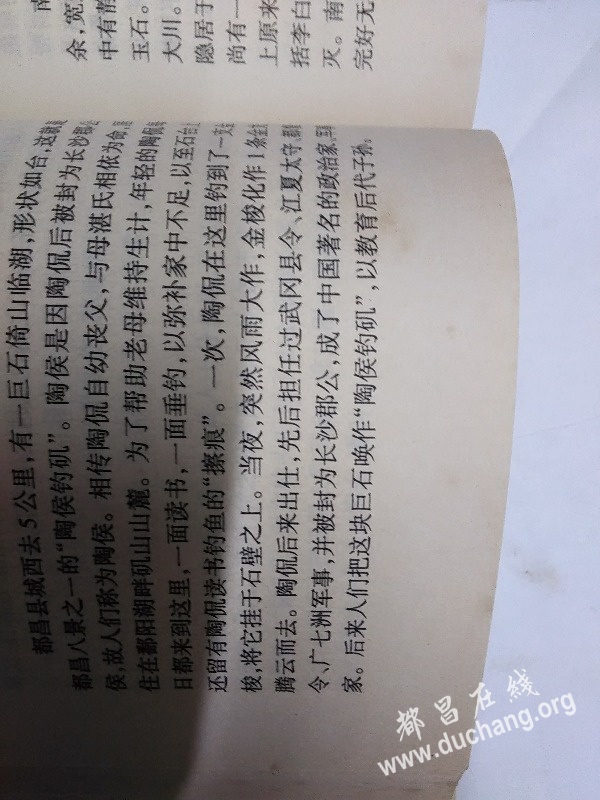 余,宽
中有
玉石。
大川。
隐居于
尚有一
上原来
括李白
灭。南
完好无
都昌县城西去5公里,有一巨石倚山临湖,形状如台,这就是
都昌八景之一的“陶侯钓矶”。陶侯是因陶侃后被封为长沙郡公
侯,故人们称为陶侯。相传陶侃自幼丧父,与母湛氏相依为命,
住在鄱阳湖畔矶山山麓。为了帮助老母维持生计,年轻的陶侃
日都来到这里,一面读书,一面垂钓,以弥补家中不足,以至石台上
还留有陶侃读书钓鱼的“擦痕”。一次,陶侃在这里钓到了一支金
梭,将它挂于石壁之上。当夜,突然风雨大作,金梭化作1条金龙
腾云而去。陶侃后来出仕,先后担任过武冈县令、江夏太守、
令、广七洲军事,并被封为长沙郡公,成了中国著名的政治家、军事
家。后来人们把这块巨石唤作“陶侯钓矶”,以教育后代子孙。
都昌在線
www.duchang.org